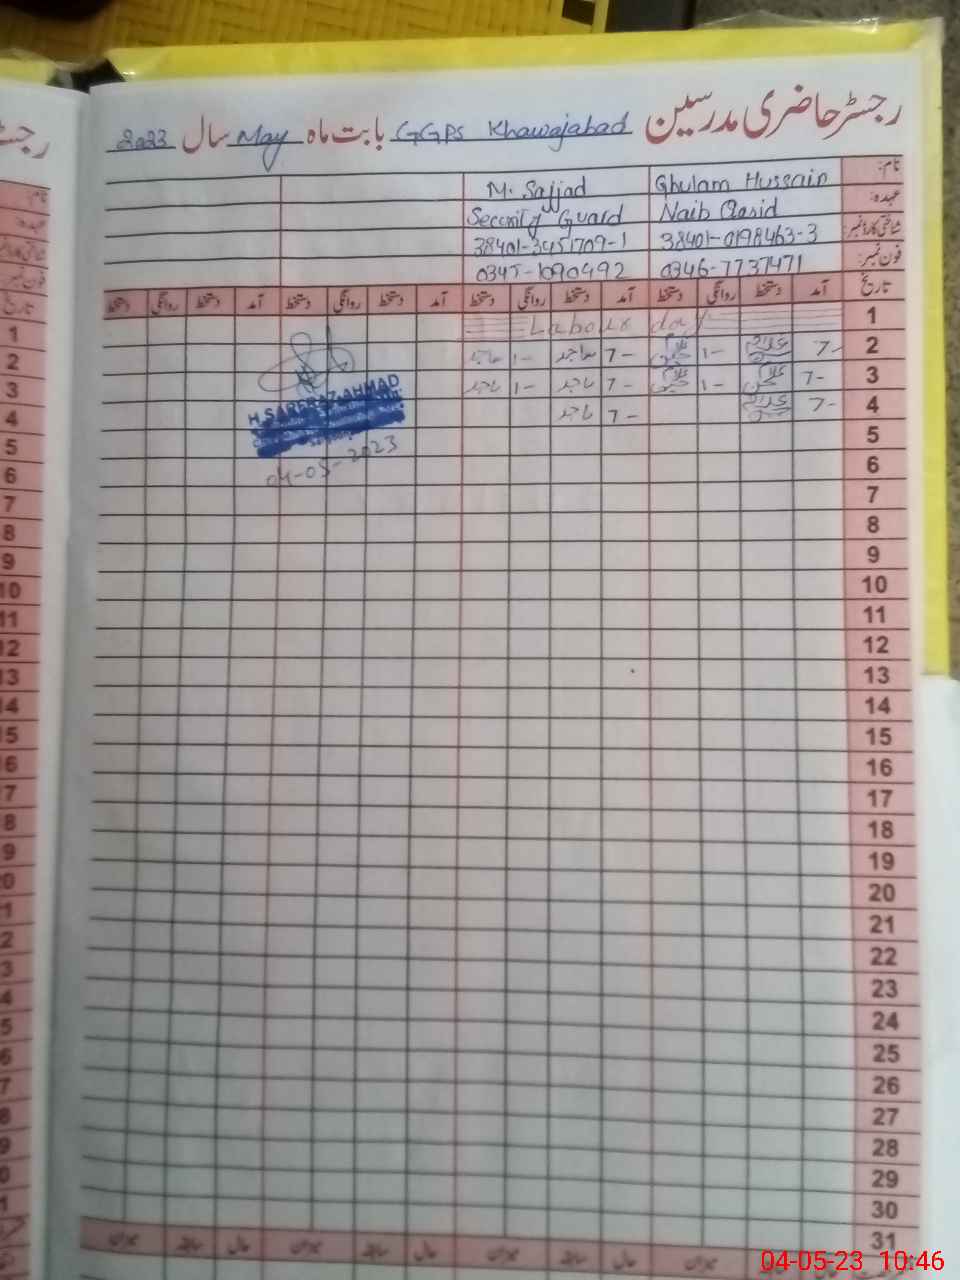 رجسٹر حاضری مدرسین GGPS Khawajabad بابت ماہ May سال 2023
نام: Ghulam Hussain M. Sajjad
عہدہ: Naib Qasid Security Guard
شناختی کارڈ نمبر: 38401-0198463-3 38401-3451709-1
فون نمبر: 0346-7737471 0345-1090492
تاریخ آمد دستخط روانگی دستخط آمد دستخط روانگی دستخط آمد دستخط روانگی دستخط آمد دستخط روانگی دستخط
1 Labour day
2 7- 1- 7- ساجد 1- ساجد
3 7- 1- 7- ساجد 1- ساجد
4 7- 7- ساجد
H.SARFRAZ AHMAD
04-05-2023
5
6
7
8
9
10
11
12
13
14
15
16
17
18
19
20
21
22
23
24
25
26
27
28
29
30
31
حال سابقہ میزان حال سابقہ میزان حال سابقہ میزان
04-05-23 10:46